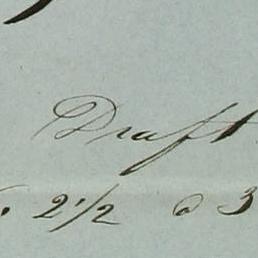 Draft
2 1/2 @ 3